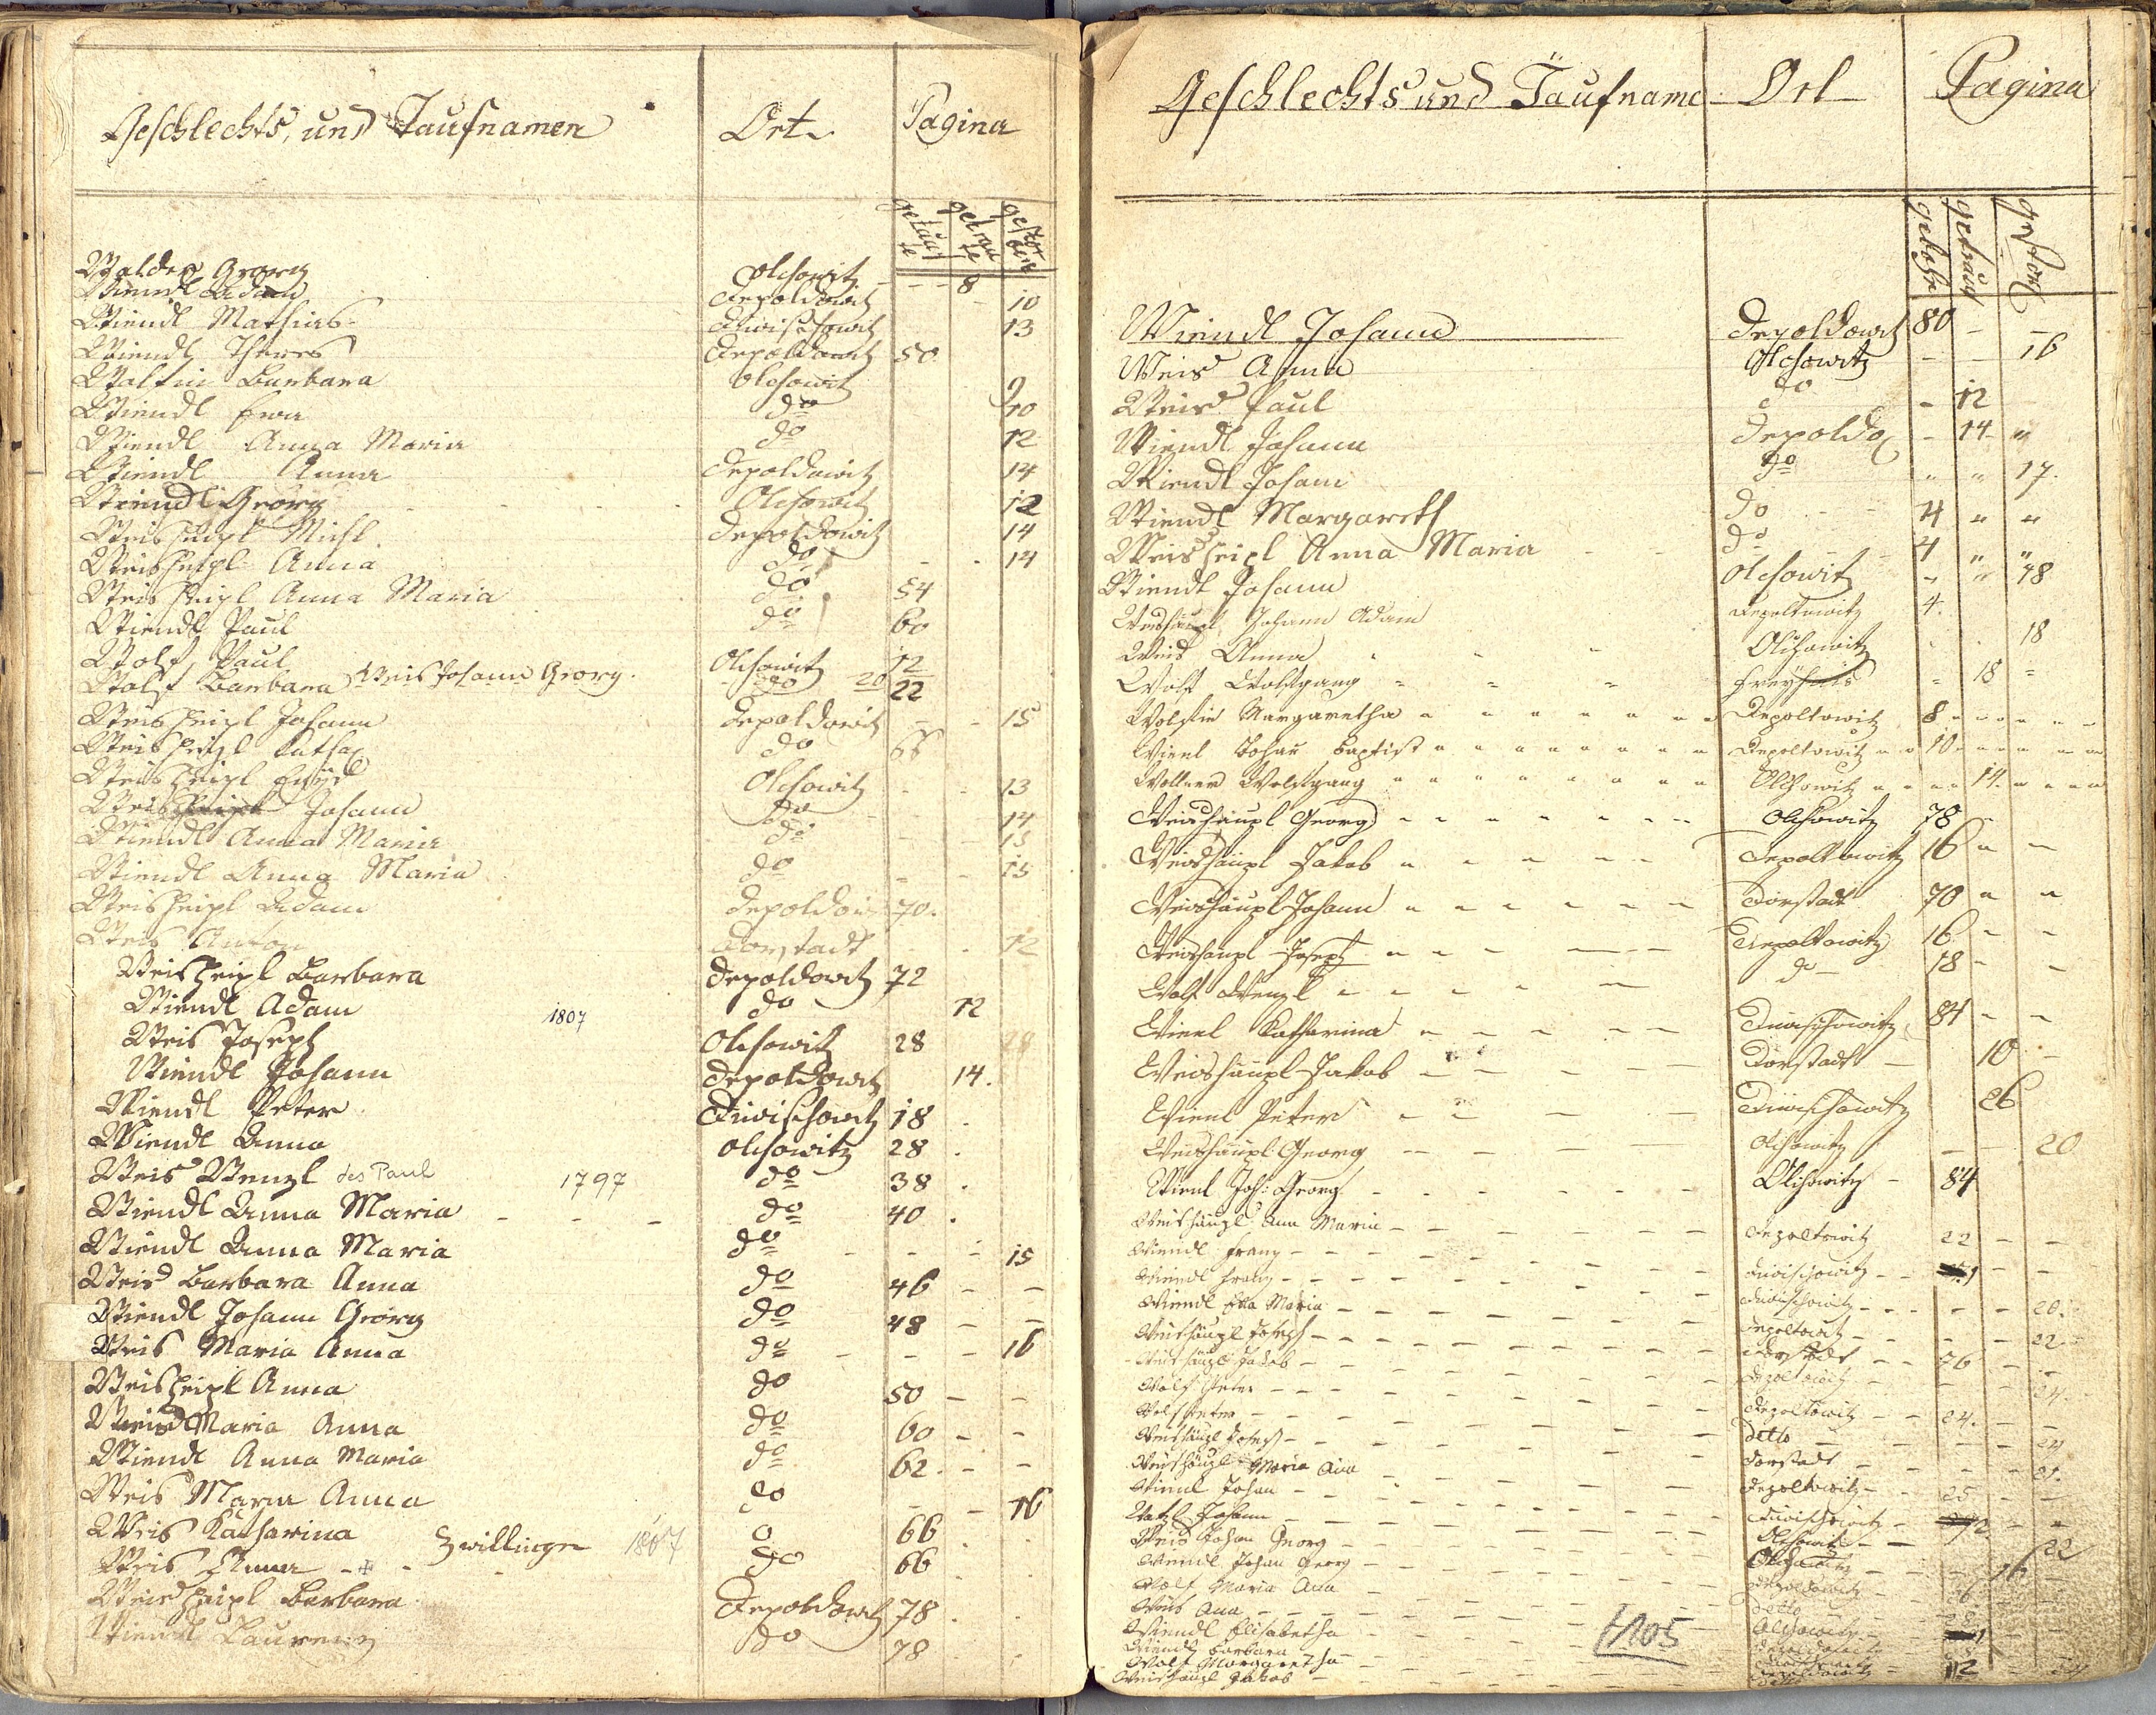 Geschlechts, und Taufnamen Ort Pagina
getaufte getraute gestorbene
Walder Georg Olchowitz - - 8
Wiendl Adam Depoldowitz - 10
Wiendl Mathias Diwischowitz 13
Wiendl Theres Depoldowitz 50
Barbara Olchowitz 9
Wiendl Eva do 10
Wiendl Anna Maria do 12
Wiendl Anna Depoldowitz 14
Wiendl Georg Olchowitz 12
Weisheipl Michl Depoldowitz 14
Weisheipl Anna do - - 14
Weisheipl Anna Maria do 54
Wiendl Paul do 60
Wolf Paul Olchowitz 12
Wolf Barbara Weis Johann Georg. do 20 22
Weisheipl Johann Depoldowitz - - 15
Weisheipl Kathar do 66
Weisheipl Olchowitz - - 13
Weis Johann do - - 14
Wiendl Anna Maria do - - 15
Wiendl Anna Maria do - - 15
Weisheipl Adam Depoldowi 70.
Weis Anton Dorstadt - - 12
Weisheipl Barbara Depoldowitz 72
Wiendl Adam 1807 do 12
Weis Joseph Olchowitz 28 28
Wiendl Johann Depoldowitz 14.
Wiendl Peter Diwischowitz 18 .
Wiendl Anna Olchowitz 28 .
Weis Wenzl des Paul 1797 do 38 .
Wiendl Anna Maria - - - do 40 .
Wiendl Anna Maria do - - - 15
Weis Barbara Anna do 46 - -
Wiendl Johann Georg do 48 - -
Weis Maria Anna do - - - 16
Weisheipl Anna do 50 - -
Weis Maria Anna do 60 - -
Wiendl Anna Maria do 62. - -
Weis Maria Anna do - - 16
Weis Katharina Zwillinge 1807 do 66
Weis Anna - + - do 66
Weisheipl Barbara Depoldowitz 78 .
Wiendl Laurenz do 78
Geschlechts und Taufname Ort Pagina
gebohr getraut gestorb
Wiendl Johann Depoldowitz 80 - -
Weis Anna Olchowitz - - 16
Weis Paul do - 12
Wiendl Johann Depoldo - 14 "
Wiendl Johann do " " 17.
Wiendl Margareth do 4 " "
Weisheipl Anna Maria do 4 " "
Wiendl Johann Olchowitz - " 18
Weishäupl Johann Adam Depoltowitz 4.
Weis Anna Olchowitz . . 18
Wolf Wolfgang Freyhels = 18 =
Wolfin Margaretha Depoltowitz 8
Wienl Johan Baptist Depoltowitz 10
Wollner Wolfgang Olchowitz 14.
Weishäupl Georg Olchowitz 78
Weishäupl Jakob Depoltowitz 16 - -
Weishäupl Johann Dorstadt 70 - -
Weishäupl Joseph Depoltowitz 16 - -
Wolf Wenzl do 18 - -
Wienl Katharina Diwischowitz 84 - -
Weishäupl Jakob Dorstadt - 10 -
Wienl Peter Diwischowitz 26
Weishäupl Georg Olchowitz - - 20
Wienl Joh: Georg Olchowitz - 84
Weishäupl Ann Maria Depoltowitz 22 - -
Wiendl Franz Diwischowitz
Wiendl Franz Diwischowitz 20.
Wiendl Eva Maria Depoltowitz 22
Weishäupl Joseph Dorstadt 76
Weishäupl Jakob Depoltowitz 24.
Wolf Peter Depoltowitz 24.
Wolf Peter detto 24
Weishäupl Joseph Dorstadt 21.
Weishäupl Maria Ana Depoltowitz 25
Wienl Johan Diwischowitz
Johann Olchowitz 22
Weis Johan Georg Olchowitz 16
Wiendl Johan Georg Depoldowitz
Wolf Maria Ana detto
Weis Ana Olchowitz
Wiendl Elisabetha
Wiendl Barbara
Wolf Margaretha
Weishäupl Jakob
1105